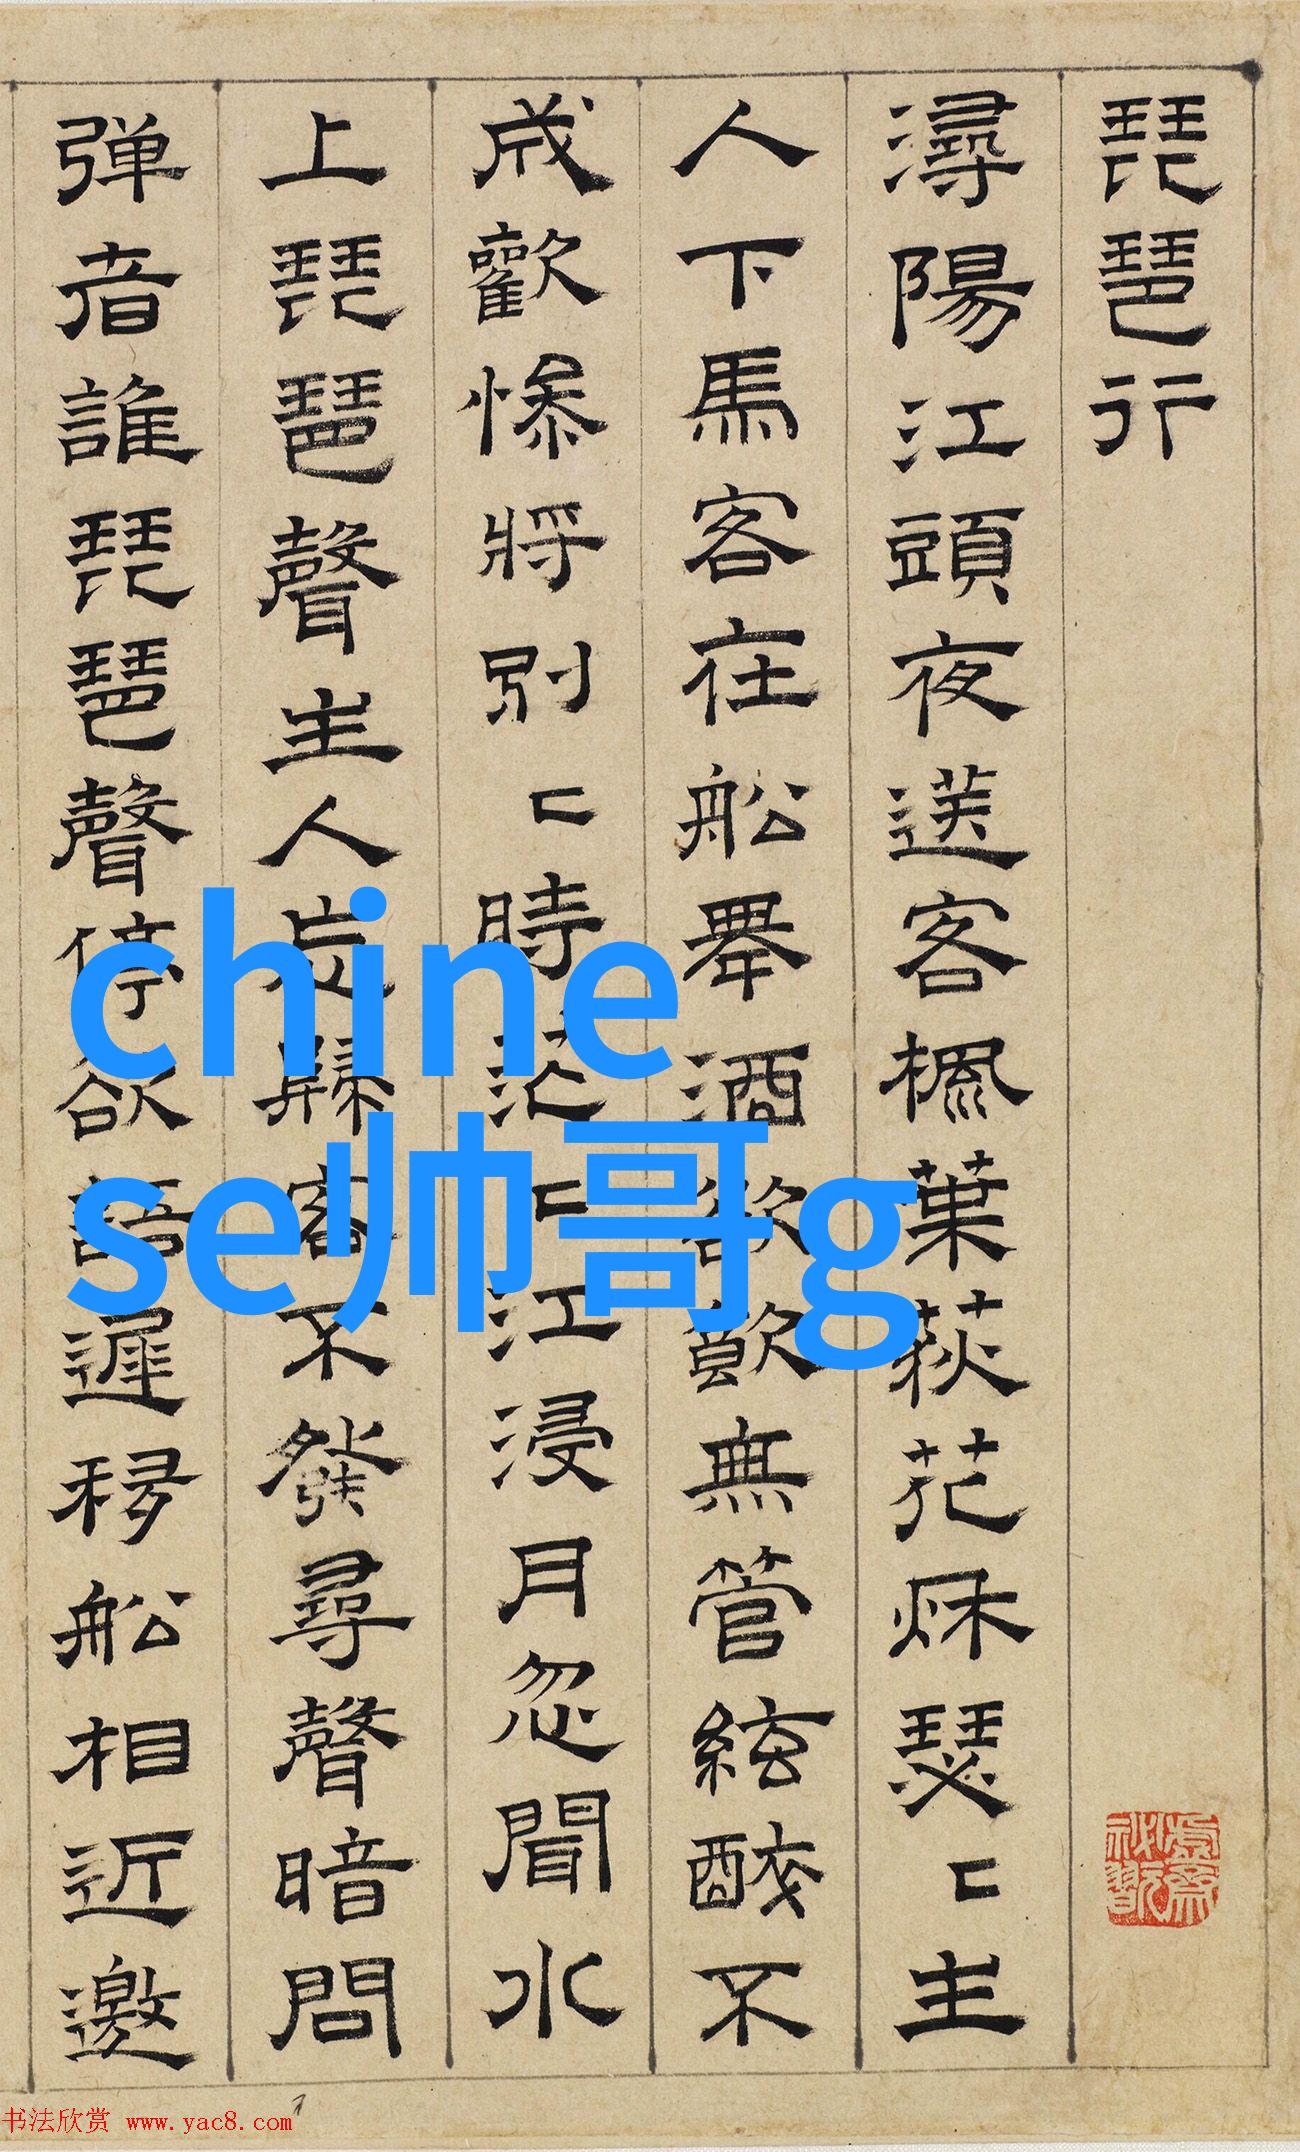 琵琶行
潯陽江頭夜送客楓葉荻花秋瑟〻主
人下馬客在船舉酒欲飲無管絃醉不
成歡慘將別〻時茫〻江浸月忽聞水
上琵琶聲主人忘歸客不發尋聲暗問
弹者誰琵琶聲停欲語遲移船相近邀
chine
se帅哥g
书法欣赏 www.yac8.com